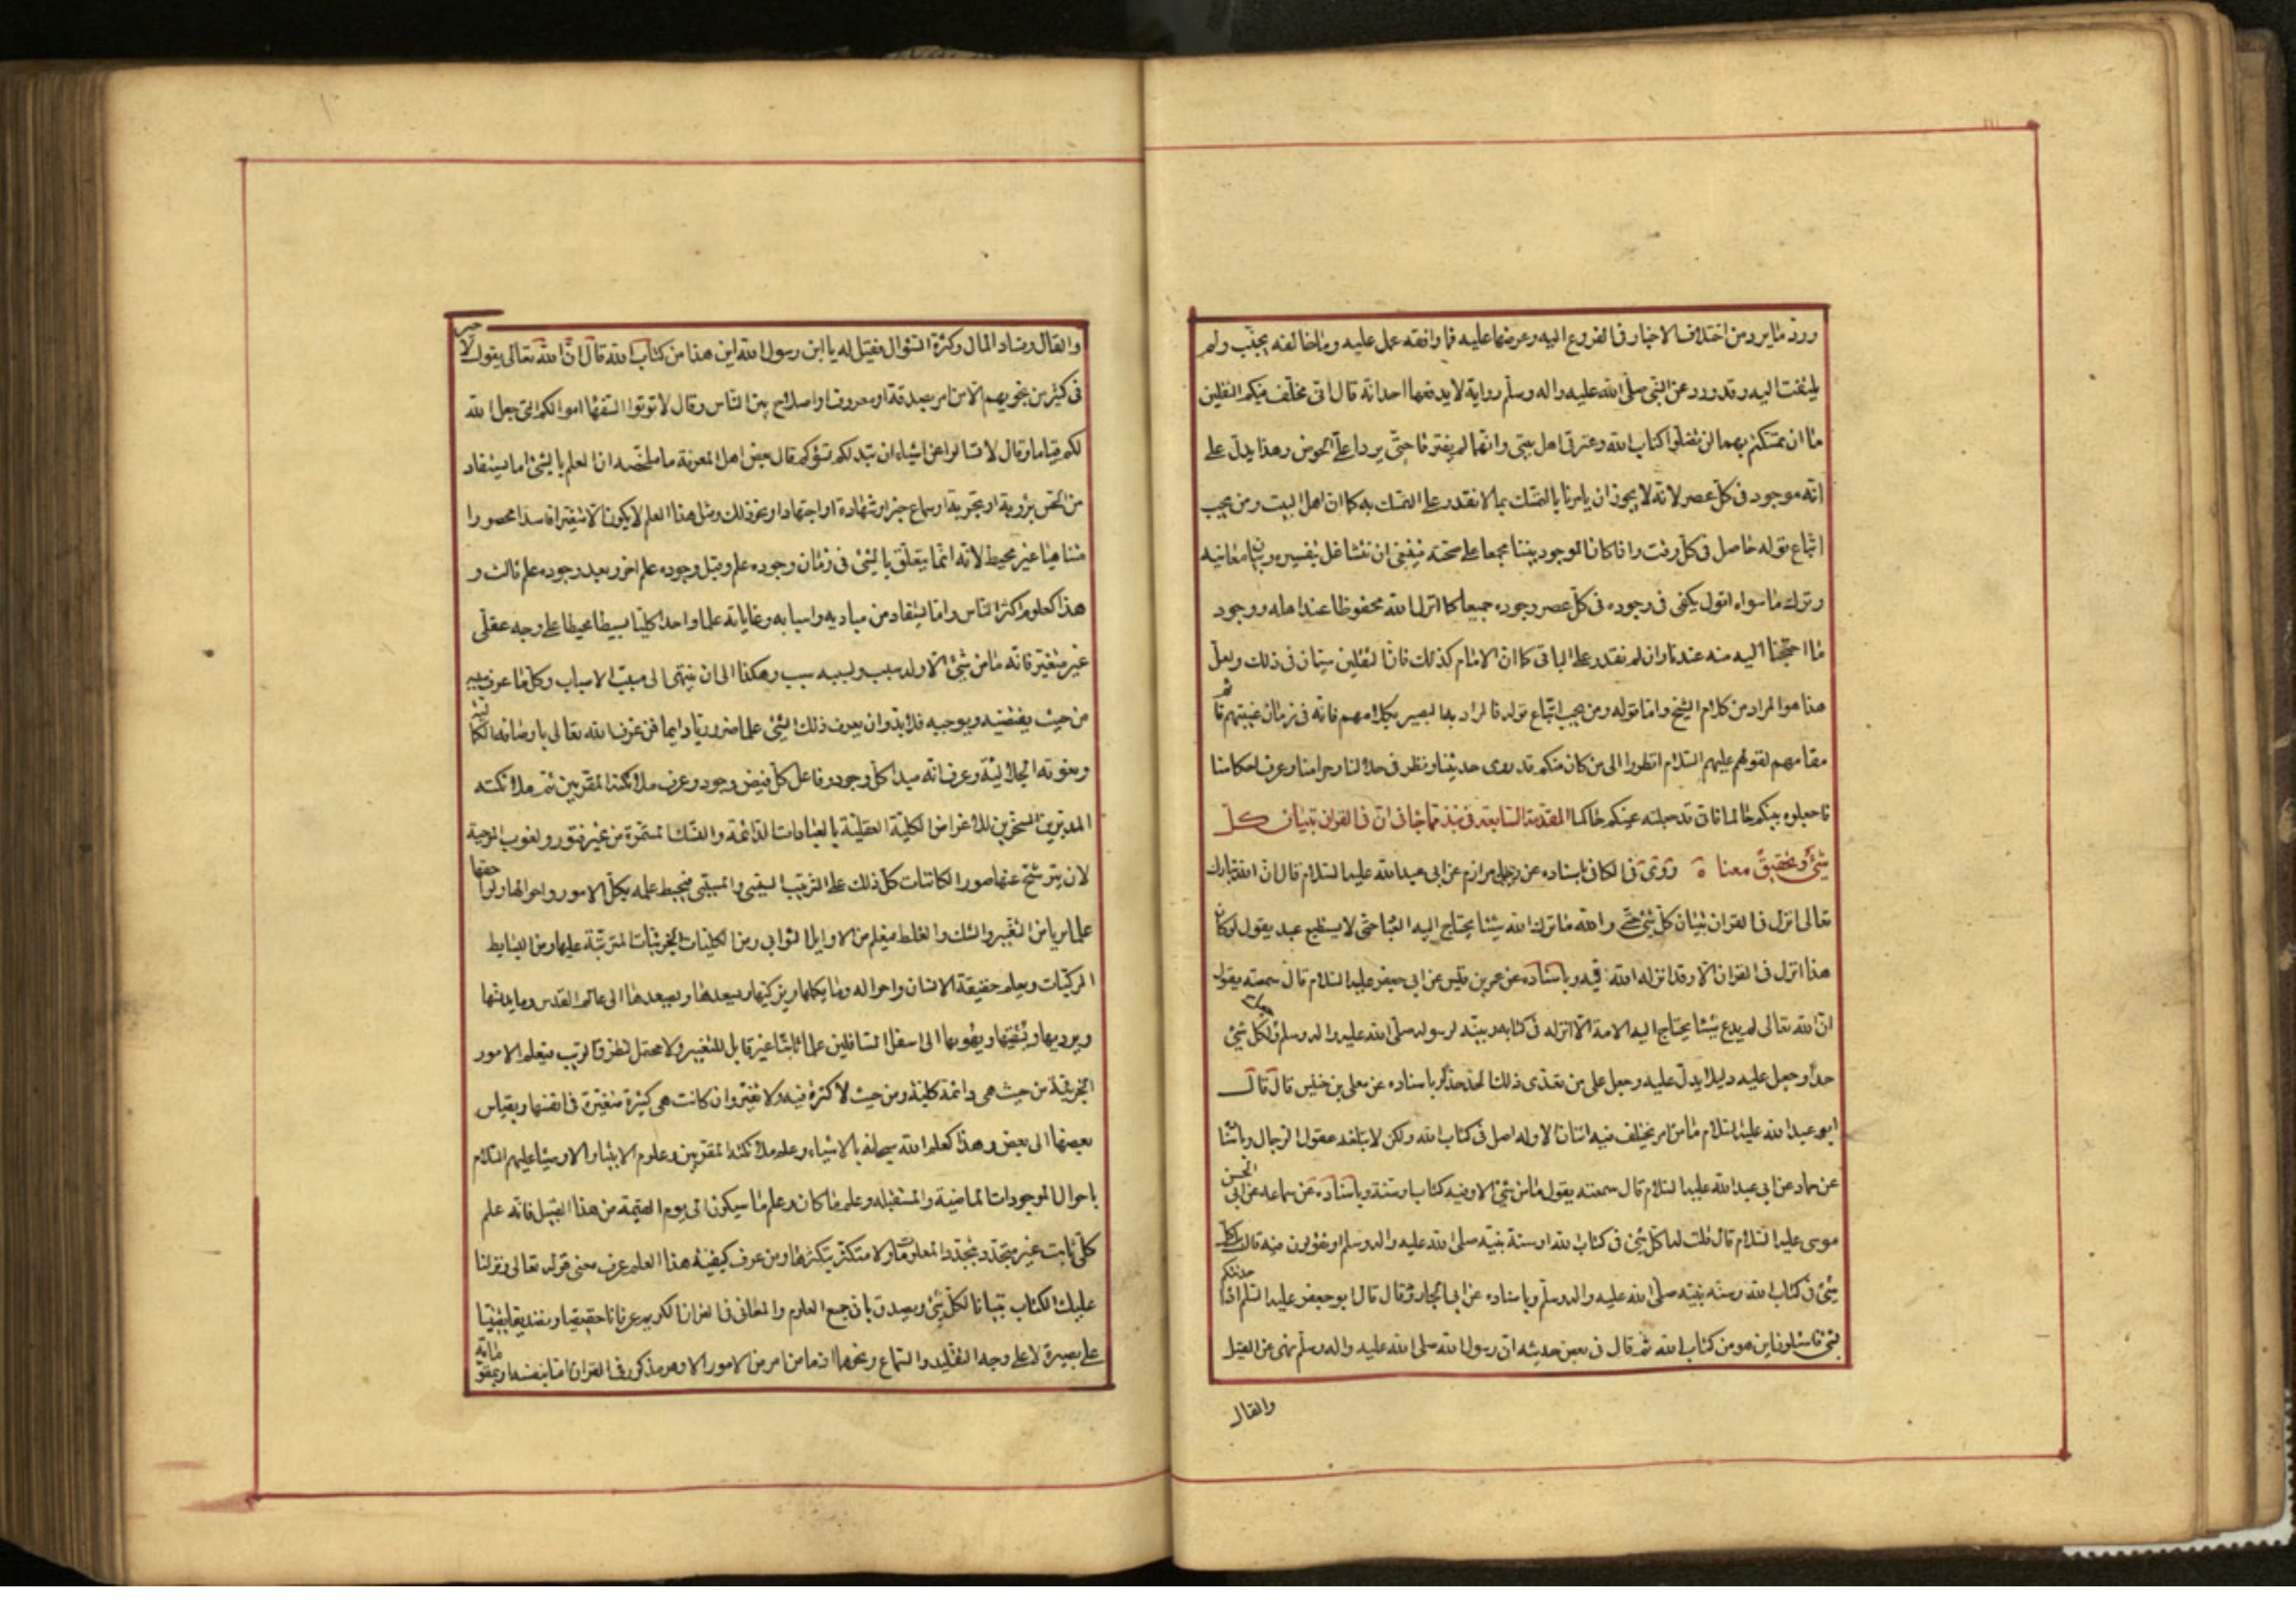 وردّ ما يرد من اختلاف الاخبار فى الفروع اليه وعرضها عليه فما وافقه عمل عليه وما خالفه يجنّب ولم
يلتفت اليه وقد ورد عن النبى صلّى الله عليه واله وسلّم رواية لا يدفعها احد انّه قال انّى مخلّف فيكم الثقلين
ما ان تمسّكتم بهما لن تضلّوا كتاب الله وعترتى اهل بيتى وانّهما لم يفترقا حتّى يردا علىّ الحوض وهذا يدلّ على
انّه موجود فى كلّ عصر لانّه لا يجوز ان يامرنا بالتمسّك بما لا نقدر على التمسّك به كما ان اهل البيت ومن يجب
اتّباع قوله حاصل فى كلّ وقت واذا كان الموجود بيننا مجمعا على صحّته فينبغى ان نتشاغل بتفسيره وبيان معانيه
وترك ما سواه اقول يكفى فى وجوده فى كلّ عصر وجوده جميعا كما انزل الله محفوظا عند اهله ووجود
ما احتجنا اليه منه عندنا وان لم نقدر على الباقى كما ان الامام كذلك فانّ الثقلين سيّان فى ذلك ولعلّ
هذا هو المراد من كلام الشيخ وامّا قوله ومن يجب اتّباع قوله فالمراد به البصير بكلامهم فانه فى زمان غيبتهم قائم
مقامهم لقولهم عليهم السّلام انظروا الى من كان منكم قد روى حديثنا ونظر فى حلالنا وحرامنا وعرف احكامنا
فاجعلوه بينكم حاكما فانّى قد جعلته عليكم حاكما المقدّمة السّابعة فى نبذ مما جاء فى انّ فى القران تبيان كلّ
شىء وتحقيق معناه روى فى الكافى باسناده عن مرازم عن ابى عبد الله عليه السّلام قال انّ الله تبارك
تعالى انزل فى القران تبيان كلّ شىء حتّى والله ما ترك الله شيئا يحتاج اليه العباد حتّى لا يستطيع عبد يقول لو كان
هذا انزل فى القران الّا وقد انزله الله فيه وباسناده عن عمر بن قيس عن ابى جعفر عليه السّلام قال سمعته يقول
انّ الله تعالى لم يدع شيئا يحتاج اليه الامة الّا انزله فى كتابه وبيّنه لرسوله صلّى الله عليه واله وسلّم وجعل لكلّ شىء
حدّا وجعل عليه دليلا يدلّ عليه وجعل على من تعدّى ذلك الحدّ حدّا وباسناده عن معلى بن خنيس قال قال
ابو عبد الله عليه السّلام ما من امر يختلف فيه اثنان الّا وله اصل فى كتاب الله ولكن لا تبلغه عقول الرجال وباسناده
عن حماد عن ابى عبد الله عليه السّلام قال سمعته يقول ما من شىء الا وفيه كتاب او سنّة وباسناده عن سماعه عن ابى الحسن
موسى عليه السّلام قال قلت له اكلّ شىء فى كتاب الله او سنة نبيّه صلى الله عليه واله وسلم او تقولون فيه قال بل كلّ
شىء فى كتاب الله وسنّة نبيّه صلّى الله عليه واله وسلّم وباسناده عن ابى الجارود قال قال ابو جعفر عليه السّلم اذا حدثتكم
بشىء فاسئلونى اين هو من كتاب الله ثمّ قال فى بعض حديثه انّ رسول الله صلى الله عليه واله وسلّم نهى عن القيل
والقال
والقال وفساد المال وكثرة السّؤال فقيل له يا ابن رسول الله اين هذا من كتاب الله قال انّ الله تعالى يقول لا خير
فى كثير من نجويهم الّا من امر بصدقة او معروف او اصلاح بين النّاس وقال لا تؤتوا السّفهاء اموالكم التى جعل الله
لكم قياما وقال لا تسالوا عن اشياء ان تبد لكم تسؤكم قال بعض اهل المعرفة ما ملخّصه ان العلم بالشىء اما يستفاد
من الحسّ برؤية او تجربة او سماع خبر او شهادة او اجتهاد او نحو ذلك ومثل هذا العلم لا يكون الّا متغيّرا فاسدا محصورا
متناهيا غير محيط لانّه انّما يتعلّق بالشىء فى زمان وجوده علم وقبل وجوده علم اخر وبعد وجوده علم ثالث و
هذا كعلوم اكثر النّاس وامّا يستفاد من مباديه واسبابه وغاياته علما واحدا كليّا بسيطا محيطا على وجه عقلّى
غير متغيّر فانّه ما من شىء الّا وله سبب ولسببه سبب وهكذا الى ان ينتهى الى مسبّب الاسباب وكلّ ما عرف سببه
من حيث يقتضيه ويوجبه فلا بدّ وان يعرف ذلك الشىء علما ضروريّا دايما فمن عرف الله تعالى باوصافه الكماليّة
ونعوته الجلاليّة وعرف انّه مبدأ كلّ وجود وفاعل كلّ فيض وجود وعرف ملائكته المقرّبين ثمّ ملائكته
المدبّرين المسخّرين للاغراض الكليّة العقليّة بالعبادات الدّائمة والنّسك المستمرّة من غير فتور ولغوب الموجبة
لان يترشّح عنها صور الكائنات كلّ ذلك على الترتيب السببى والمسبّبى فيحيط علمه بكلّ الامور واحوالها ولواحقها
علما بريا من التّغيير والشك والغلط فيعلم من الاوايل الثوانى ومن الكليّات الجزئيّات المترتّبة عليها ومن البسايط
المركّبات ويعلم حقيقة الانسان واحواله وما يكملها ويزكّيها ويسعدها ويصعدها الى عالم القدس وما يدنّسها
ويرديها ويشقيها ويهويها الى اسفل السّافلين علما ثابتا غير قابل للتغيير ولا محتمل لتطرّق الريب فيعلم الامور
الجزئيّة من حيث هى دائمة كليّة ومن حيث لا كثرة فيه ولا تغيّر وان كانت هى كثيرة متغيّرة فى انفسها وبقياس
بعضها الى بعض وهذا كعلم الله سبحانه بالاشياء وعلم ملائكته المقرّبين وعلوم الانبياء والاوصياء عليهم السّلام
باحوال الموجودات الماضية والمستقبله وعلم ما كان وعلم ما سيكون الى يوم القيمة من هذا القبيل فانّه علم
كلّى ثابت غير متجدّد بتجدّد المعلومات ولا متكثّر بتكثّرها ومن عرف كيفيّة هذا العلم عرف معنى قوله تعالى ونزلنا
عليك الكتاب تبيانا لكلّ شىء ويصدق بان جميع العلوم والمعانى فى القران الكريم عرفانا حقيقيا وتصديقا يقينيّا
على بصيرة لا على وجه التقليد والسّماع ونحوهما اذ ما من امر من الامور الا وهو مذكور فى القران امّا بنفسه او بمقوّماته